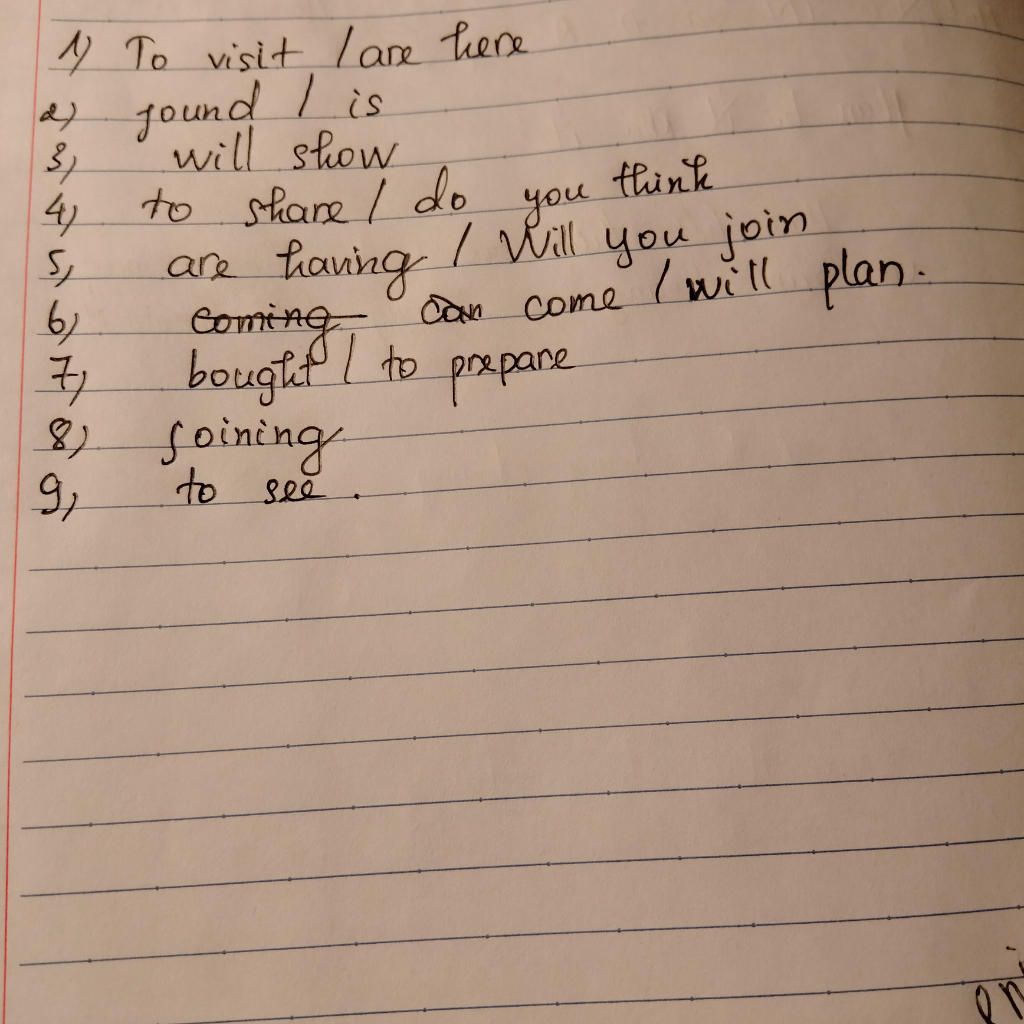 1) To visit / are here
2) found / is
3) will show
4) to share / do you think
5) are having / Will you join
6) coming can come / will plan.
7) bought / to prepare
8) Joining
9) to see.